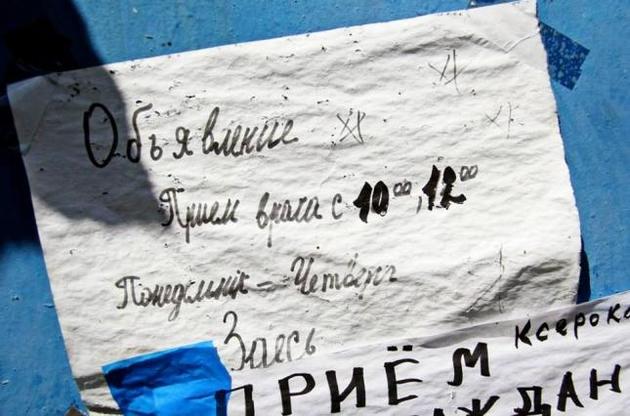 Объявление
Прием врача с 10⁰⁰, 12⁰⁰
Понедельник - Четверг
Здесь
ПРИЁМ Ксерок
ЖДАН